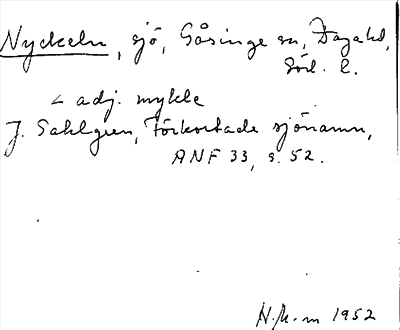 Nyckeln, sjö, Gåsinge sn, Daga hd,
Södl. l.
< adj. mykle
J. Sahlgren, Förkortade sjönamn,
ANF 33, s. 52.
1952